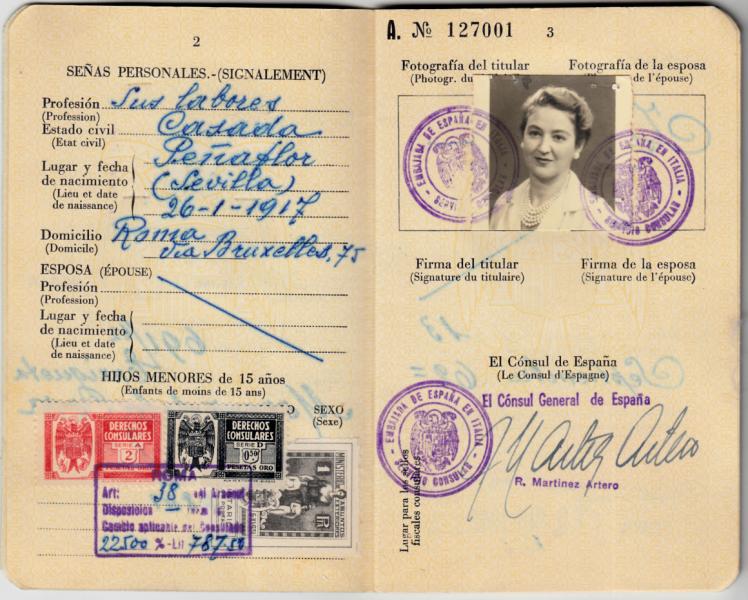 2
SEÑAS PERSONALES.-(SIGNALEMENT)
Profesión Sus labores
(Profession)
Estado civil Casada
(Etat civil)
Lugar y fecha de nacimiento Peñaflor
(Lieu et date de naissance) (Sevilla)
26-1-1917
Domicilio Roma
(Domicile) Via Bruxelles, 75
ESPOSA (ÉPOUSE)
Profesión
(Profession)
Lugar y fecha
de nacimiento
(Lieu et date
de naissance)
HIJOS MENORES de 15 años
(Enfants de moins de 15 ans)
O SEXO
(Sexe)
DERECHOS CONSULARES
SERIE A
2
DERECHOS CONSULARES
SERIE D
0'50
PESETAS ORO
1
ROMA
Art: 38 del Arancel
Disposición
Cambio aplicable del Consulado
22500 %-Lit 787,50
A. Nº 127001
3
Fotografía del titular
(Photogr. du
Fotografía de la esposa
de l'épouse)
EMBAJADA DE ESPAÑA EN ITALIA
EMBAJADA DE ESPAÑA EN ITALIA
SERVICIO CONSULAR
Firma del titular
(Signature du titulaire)
Firma de la esposa
(Signature de l'épouse)
El Cónsul de España
(Le Consul d'Espagne)
El Cónsul General de España
EMBAJADA DE ESPAÑA EN ITALIA
SERVICIO CONSULAR
R. Martinez Artero
Lugar para los sellos
fiscales consulares